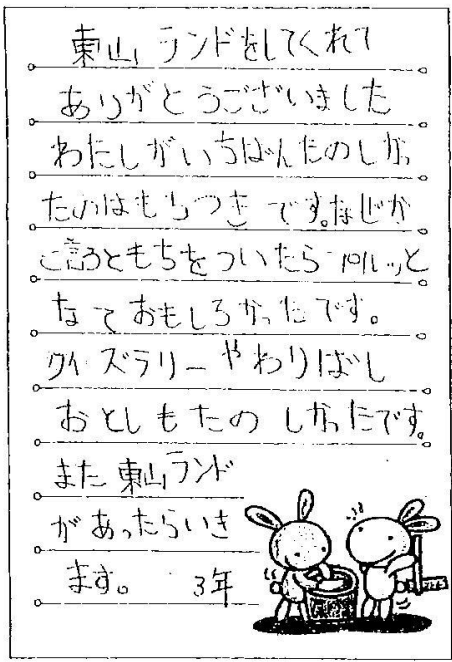 東山ランドをしてくれて
ありがとうございました
わたしがいちばんたのしかっ
たのはもちつきです。なぜか
と言うともちをついたらペルッと
なておもしろかったです。
クイズラリーやわりばし
おとしもたのしかったです。
また東山ランド
があったらいき
ます。 3年